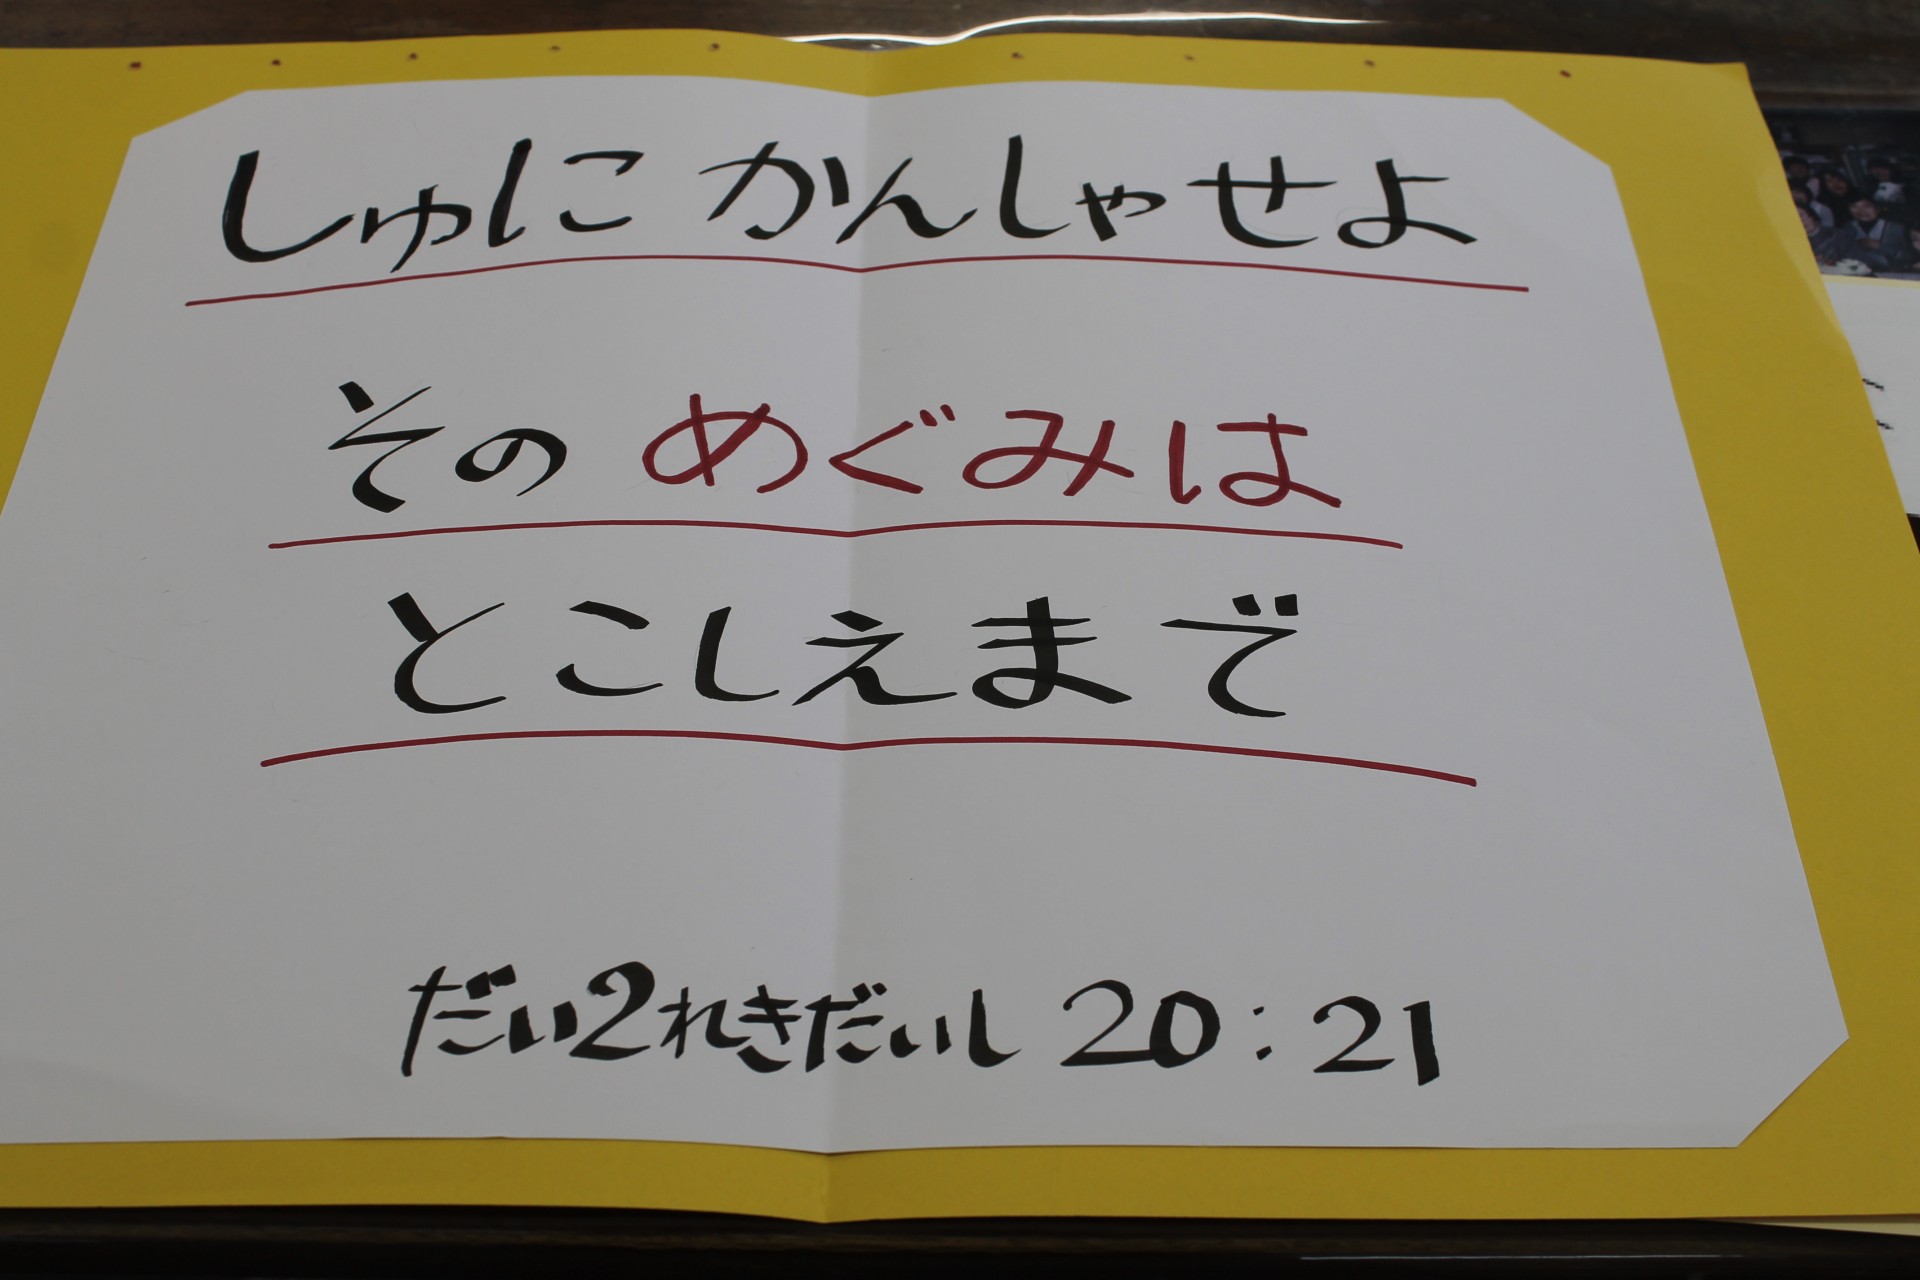 しゅに かんしゃせよ
その めぐみは
とこしえまで
だい2れきだいし 20:21